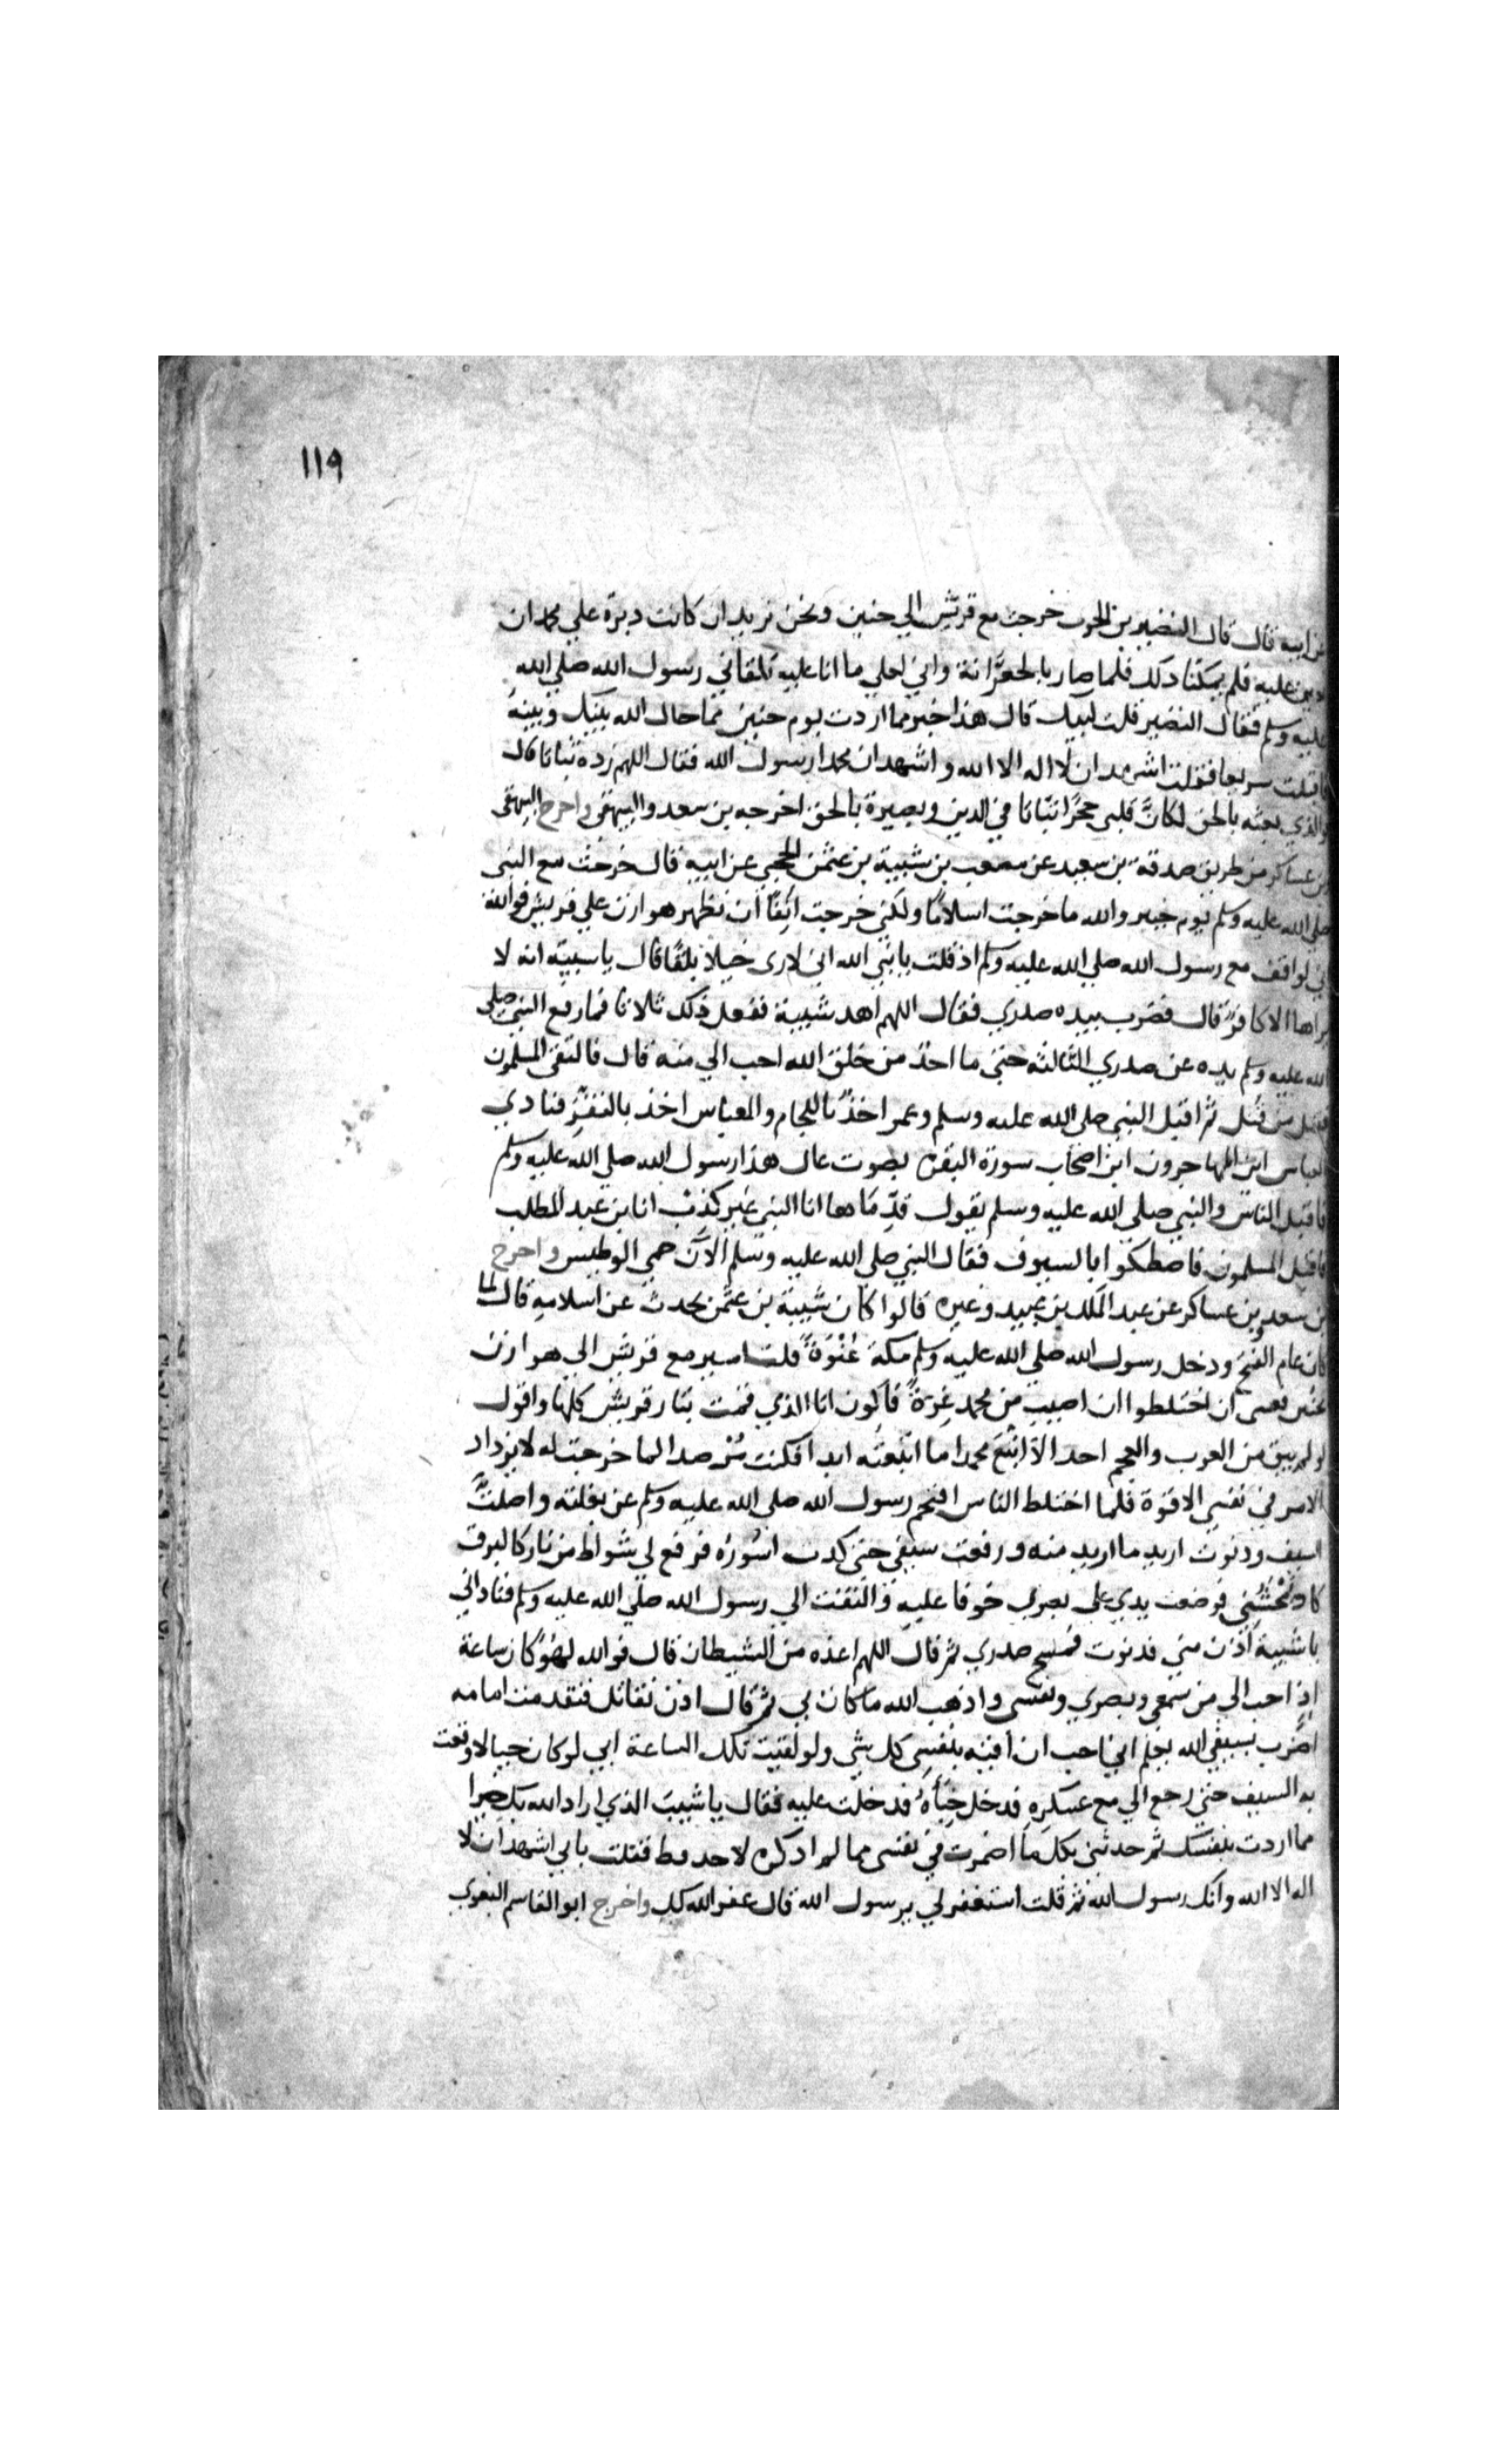 ١١٩
عن ابيه قال قال النضير بن الحرث خرجت مع قريش الي حنين ونحن نريد ان كانت دبرة علي محمد ان
نعين عليه فلم يمكنا ذلك فلما صار بالجعرَّانة واني لعلي ما انا عليه تلقاني رسول الله صلي الله
عليه وسلم فقال النضير قلت لبيك قال هذا خير مما اردت يوم حنين مما حال الله بينك وبينه
فاقبلت سريعا فقلت اشهد ان لا اله الا الله واشهد ان محمدا رسول الله فقال اللهم زده ثباتا قال
والذي بعثه بالحق لكانَّ قلبي حجرًا ثباتا في الدين وبصيرة بالحق اخرجه بن سعد والبيهقي واخرج البيهقي
بن عساكر من طريق صدقة بن سعيد عن مصعب بن شيبة بن عثمن الحجبي عن ابيه قال خرجت مع النبي
صلي الله عليه وسلم يوم خيبر والله ما خرجت اسلامًا ولكني خرجت انِفًا ان تظهر هوازن علي قريش فوالله
اني لواقف مع رسول الله صلي الله عليه وسلم اذ قلت يا نبي الله اني لاري خيلا بلقًا قال يا شيبة انه لا
يراها الا كافرٌ قال فضرب بيده صدري فقال اللهم اهد شيبة ففعل ذلك ثلاثا فما رفع النبي صلي
الله عليه وسلم يده عن صدري الثالثه حتي ما احدٌ من خلق الله احب الي منه قال فالتقي المسلمون
فقتل من قُتل ثم اقبل النبي صلي الله عليه وسلم وعمر اخذٌ باللجام والعباس اخذ بالثفَر فنادي
العباس اين المهاجرون اين اصحاب سورة البقرة بصوت عال هذا رسول الله صلي الله عليه وسلم
فاقبل الناس والنبي صلي الله عليه وسلم يقول قدِّماها انا النبي غير كذِبْ انا بن عبد المطلب
فاقبل المسلمون فاصطكوا بالسيوف فقال النبي صلي الله عليه وسلم الآن حمي الوطيس واخرج
بن سعد وبن عساكر عن عبد الملك بن عبيد وغيره قالوا كان شيبة بن عثمن يحدث عن اسلامه قال لما
كان عام الفتح ودخل رسول الله صلي الله عليه وسلم مكة عُنْوَةً قلت اسير مع قريش الي هوازن
بحنين فعسي ان اختلطوا ان اصيب من محمد غِرَّةً فاكون انا الذي قمت بثار قريش كلها واقول
لو لم يبق من العرب والعجم احد الا اتبَع محمدا ما اتبعته ابدا فكنت مُرصدا لما خرجت له لا يزداد
الامر في نفسي الا قوة فلما اختلط الناس اقتحم رسول الله صلي الله عليه وسلم عن بغلته واصلتُّ
السيف ودنوت اريد ما اريد منه ورفعت سيفي حتي كدت اسُورُه فرفع لي شواظ من نار كالبرق
كاد يمحشُني فوضعت يدي علي بصري خوفا عليه والتفت الي رسول الله صلي الله عليه وسلم فناداني
يا شيبة اُدْن مني فدنوت فمسح صدري ثم قال اللهم اعذه من الشيطان قال فوالله لهُوَ كان ساعة
اذٍ احب الي من سمعي وبصري ونفسي واذهب الله ما كان بي ثم قال ادن فقاتل فتقدمت امامه
اضرب بسيفي الله يعلم اني احب ان اقيَه بنفسي كل شي ولو لقيت تلك الساعة ابي لو كان حيا لاوقعت
به السيف حتي رجع الي معسكرِه فدخل خِبَاَهُ فدخلت عليه فقال يا شيبَ الذي اراد الله بك خيرا
مما اردت بنفسك ثم حدثني بكل ما اضمرت في نفسي مما لم اذكره لاحد قط فقلت باني اشهد ان لا
اله الا الله وانك رسول الله ثم قلت استغفر لي يرسول الله قال غفر الله لك واخرج ابو القاسم البغوي